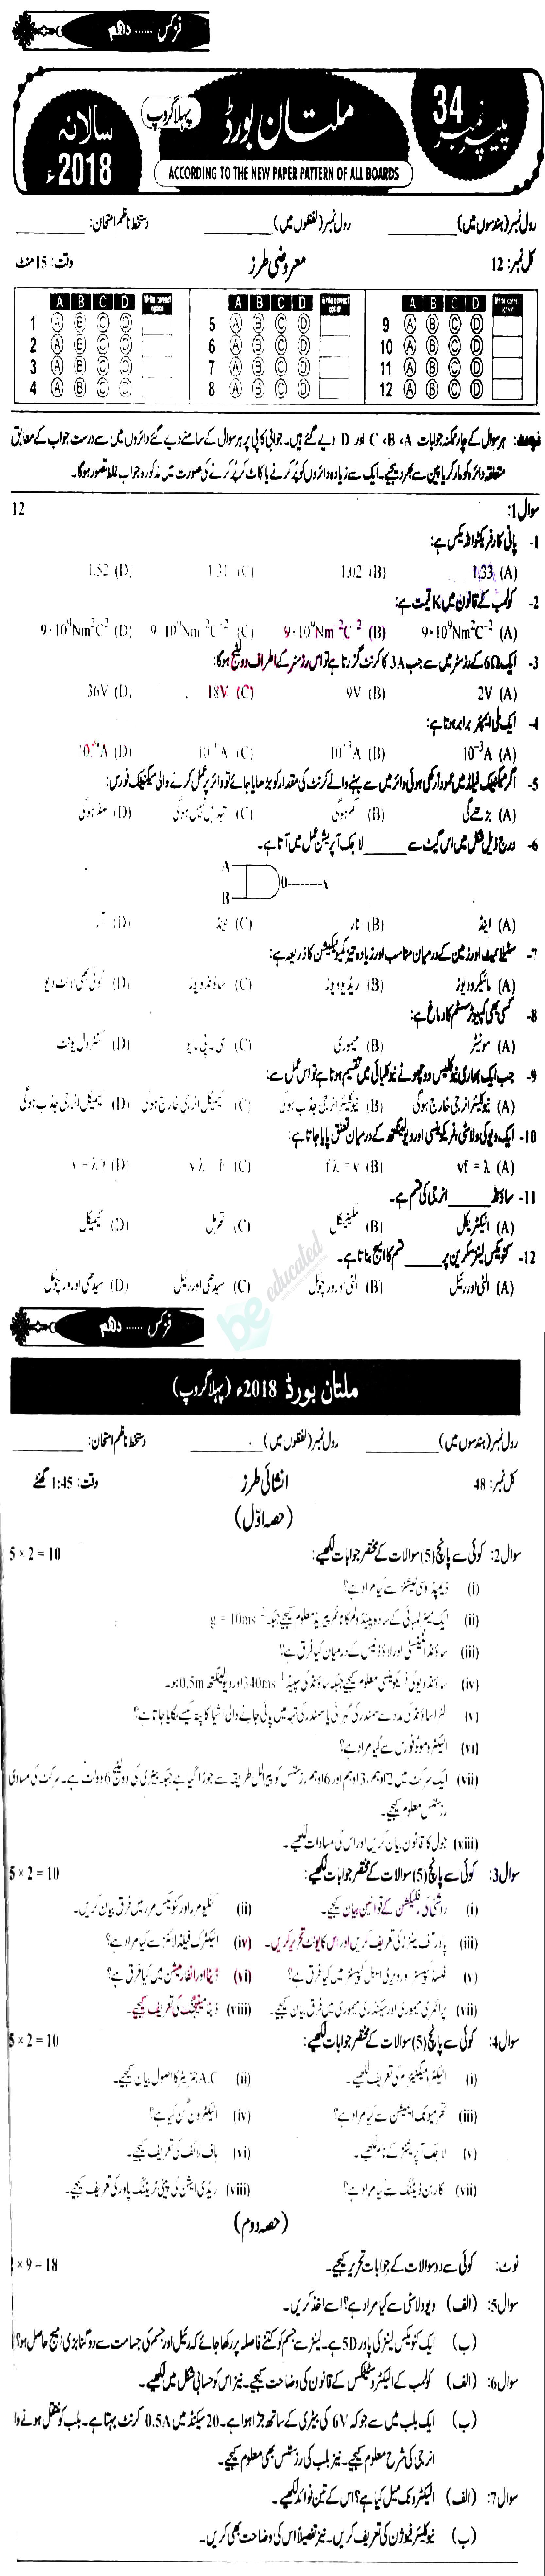 فزکس ...... دہم
پیپر نمبر 34
ملتان بورڈ
پہلا گروپ
سالانہ 2018ء
ACCORDING TO THE NEW PAPER PATTERN OF ALL BOARDS
رول نمبر (ہندسوں میں) ________ رول نمبر (لفظوں میں) ________ دستخط ناظم امتحان: ________
کل نمبر: 12 معروضی طرز وقت: 15 منٹ
A B C D Write correct option A B C D Write correct option A B C D Write correct option
1 A B C D 5 A B C D 9 A B C D
2 A B C D 6 A B C D 10 A B C D
3 A B C D 7 A B C D 11 A B C D
4 A B C D 8 A B C D 12 A B C D
نوٹ: ہر سوال کے چار ممکنہ جوابات C ،B ،A اور D دیے گئے ہیں۔ جوابی کاپی پر ہر سوال کے سامنے دیے گئے دائروں میں سے درست جواب کے مطابق
متعلقہ دائرہ کو مارکر یا پین سے بھر دیجیے۔ ایک سے زیادہ دائروں کو پُر کرنے یا کاٹ کر پُر کرنے کی صورت میں مذکورہ جواب غلط تصور ہوگا۔
سوال 1: 12
1- پانی کا رفریکٹو انڈیکس ہے:
(A) 1.33 (B) 1.02 (C) 1.31 (D) 1.52
2- کولمب کے قانون میں K کی قیمت ہے:
(A) 9×10⁹Nm²C⁻² (B) 9×10⁹Nm⁻²C⁻² (C) (D) 9×10⁹Nm²C²
3- ایک 6Ω کے رزسٹر میں سے جب 3A کا کرنٹ گزرتا ہے تو اس رزسٹر کے اطراف وولٹیج ہوگا:
(A) 2V (B) 9V (C) 18V (D) 36V
4- ایک ملی ایمپئر برابر ہوتا ہے:
(A) 10⁻³A (B) (C) (D)
5- اگر میگنیٹک فیلڈ میں عموداً رکھی ہوئی وائر میں سے بہنے والے کرنٹ کی مقدار کو بڑھایا جائے تو وائر پر عمل کرنے والی میگنیٹک فورس:
(A) بڑھے گی (B) کم ہوگی (C) تبدیل نہیں ہوگی (D) صفر ہوگی
6- درج ذیل شکل میں اس گیٹ سے ________ لاجک آپریشن عمل میں آتا ہے۔
A
B
x
(A) اینڈ (B) نار (C) نینڈ (D) آر
7- سیٹلائیٹ اور زمین کے درمیان مناسب اور زیادہ تیز کمیونیکیشن کا ذریعہ ہے:
(A) مائیکروویوز (B) ریڈیو ویوز (C) ساؤنڈ ویوز (D) کوئی بھی لائٹ ویو
8- کسی بھی کمپیوٹر سسٹم کا دماغ ہے:
(A) مونیٹر (B) میموری (C) سی۔پی۔یو (D) کنٹرول یونٹ
9- جب ایک بھاری نیوکلیس دو چھوٹے نیوکلیائی میں تقسیم ہوتا ہے تو اس عمل سے:
(A) نیوکلیئر انرجی خارج ہوگی (B) نیوکلیئر انرجی جذب ہوگی (C) کیمیکل انرجی خارج ہوگی (D) کیمیکل انرجی جذب ہوگی
10- ایک ویو کی ولاسٹی، فریکوئنسی اور ویولینگتھ کے درمیان تعلق پایا جاتا ہے:
(A) vf = λ (B) fλ = v (C) vλ = f (D)
11- ساؤنڈ ________ انرجی کی قسم ہے۔
(A) الیکٹریکل (B) مکینیکل (C) تھرمل (D) کیمیکل
12- کنویکس لینز سکرین پر ________ قسم کا امیج بناتا ہے۔
(A) الٹی اور رئیل (B) الٹی اور ورچوئل (C) سیدھی اور رئیل (D) سیدھی اور ورچوئل
be educated
فزکس ...... دہم
ملتان بورڈ 2018ء (پہلا گروپ)
رول نمبر (ہندسوں میں) ________ رول نمبر (لفظوں میں) ________ دستخط ناظم امتحان: ________
کل نمبر: 48 انشائی طرز وقت: 1:45 گھنٹے
(حصہ اوّل)
سوال 2: کوئی سے پانچ (5) سوالات کے مختصر جوابات لکھیے: 5 × 2 = 10
(i) ڈیمپڈ اوسی لیشنز سے کیا مراد ہے؟
(ii) ایک میٹر لمبائی کے سادہ پینڈولم کا ٹائم پیریڈ معلوم کیجیے جبکہ g = 10ms⁻²
(iii) ساؤنڈ انٹینسٹی اور لاؤڈنیس کے درمیان کیا فرق ہے؟
(iv) ساؤنڈ ویو کی فریکوئنسی معلوم کیجیے جبکہ ساؤنڈ کی سپیڈ 340ms⁻¹ اور ویولینگتھ 0.5m ہو۔
(v) الٹرا ساؤنڈ کی مدد سے سمندر کی گہرائی یا سمندر کی تہہ میں پائی جانے والی اشیا کا پتہ کیسے لگایا جاتا ہے؟
(vi) الیکٹروموٹو فورس سے کیا مراد ہے؟
(vii) ایک سرکٹ میں 2 اوہم، 3 اوہم اور 6 اوہم رزسٹنس کو پیرالل طریقے سے جوڑا گیا ہے جبکہ بیٹری کی وولٹیج 6 وولٹ ہے۔ سرکٹ کی مساوی
رزسٹنس معلوم کیجیے۔
(viii) جول کا قانون بیان کریں اور اس کی مساوات لکھیے۔
سوال 3: کوئی سے پانچ (5) سوالات کے مختصر جوابات لکھیے: 5 × 2 = 10
(i) روشنی کی رفلیکشن کے قوانین بیان کیجیے۔ (ii) کنکیو مرر اور کنویکس مرر میں فرق بیان کریں۔
(iii) پاور آف لینز کی تعریف کریں اور اس کا یونٹ تحریر کریں۔ (iv) الیکٹرک فیلڈ لائنز سے کیا مراد ہے؟
(v) فکسڈ کپیسٹر اور ویری ایبل کپیسٹر میں کیا فرق ہے؟ (vi) ڈیٹا اور انفارمیشن میں کیا فرق ہے؟
(vii) پرائمری میموری اور سیکنڈری میموری میں فرق بیان کیجیے۔ (viii) ڈیٹا مینیجنگ کی تعریف کیجیے۔
سوال 4: کوئی سے پانچ (5) سوالات کے مختصر جوابات لکھیے: 5 × 2 = 10
(i) الیکٹرومیگنیٹزم کی تعریف لکھیے۔ (ii) A.C جنریٹر کا اصول بیان کیجیے۔
(iii) تھرمیونک ایمیشن سے کیا مراد ہے؟ (iv) الیکٹرون گن کیا ہے؟
(v) لاجک آپریشنز کے نام لکھیے۔ (vi) ہاف لائف کی تعریف کیجیے۔
(vii) کاربن ڈیٹنگ سے کیا مراد ہے؟ (viii) ریڈی ایشن کی پینی ٹریٹنگ پاور کی تعریف کیجیے۔
(حصہ دوم)
نوٹ: کوئی سے دو سوالات کے جوابات تحریر کیجیے۔ × 9 = 18
سوال 5: (الف) ویو ولاسٹی سے کیا مراد ہے؟ اسے اخذ کریں۔
(ب) ایک کنویکس لینز کی پاور 5D ہے۔ لینز سے جسم کو کتنے فاصلہ پر رکھا جائے کہ رئیل اور جسم کی جسامت سے دو گنا بڑی امیج حاصل ہو؟
سوال 6: (الف) کولمب کے الیکٹروسٹیٹکس کے قانون کی وضاحت کیجیے۔ نیز اس کو حسابی شکل میں لکھیے۔
(ب) ایک بلب میں سے جو کہ 6V کی بیٹری کے ساتھ جڑا ہوا ہے۔ 20 سیکنڈ میں 0.5A کرنٹ بہتا ہے۔ بلب کو منتقل ہونے والی
انرجی کی شرح معلوم کیجیے۔ نیز بلب کی رزسٹنس بھی معلوم کیجیے۔
سوال 7: (الف) الیکٹرونک میل کیا ہے؟ اس کے تین فوائد لکھیے۔
(ب) نیوکلیئر فیوژن کی تعریف کریں۔ نیز تفصیلاً اس کی وضاحت بھی کریں۔